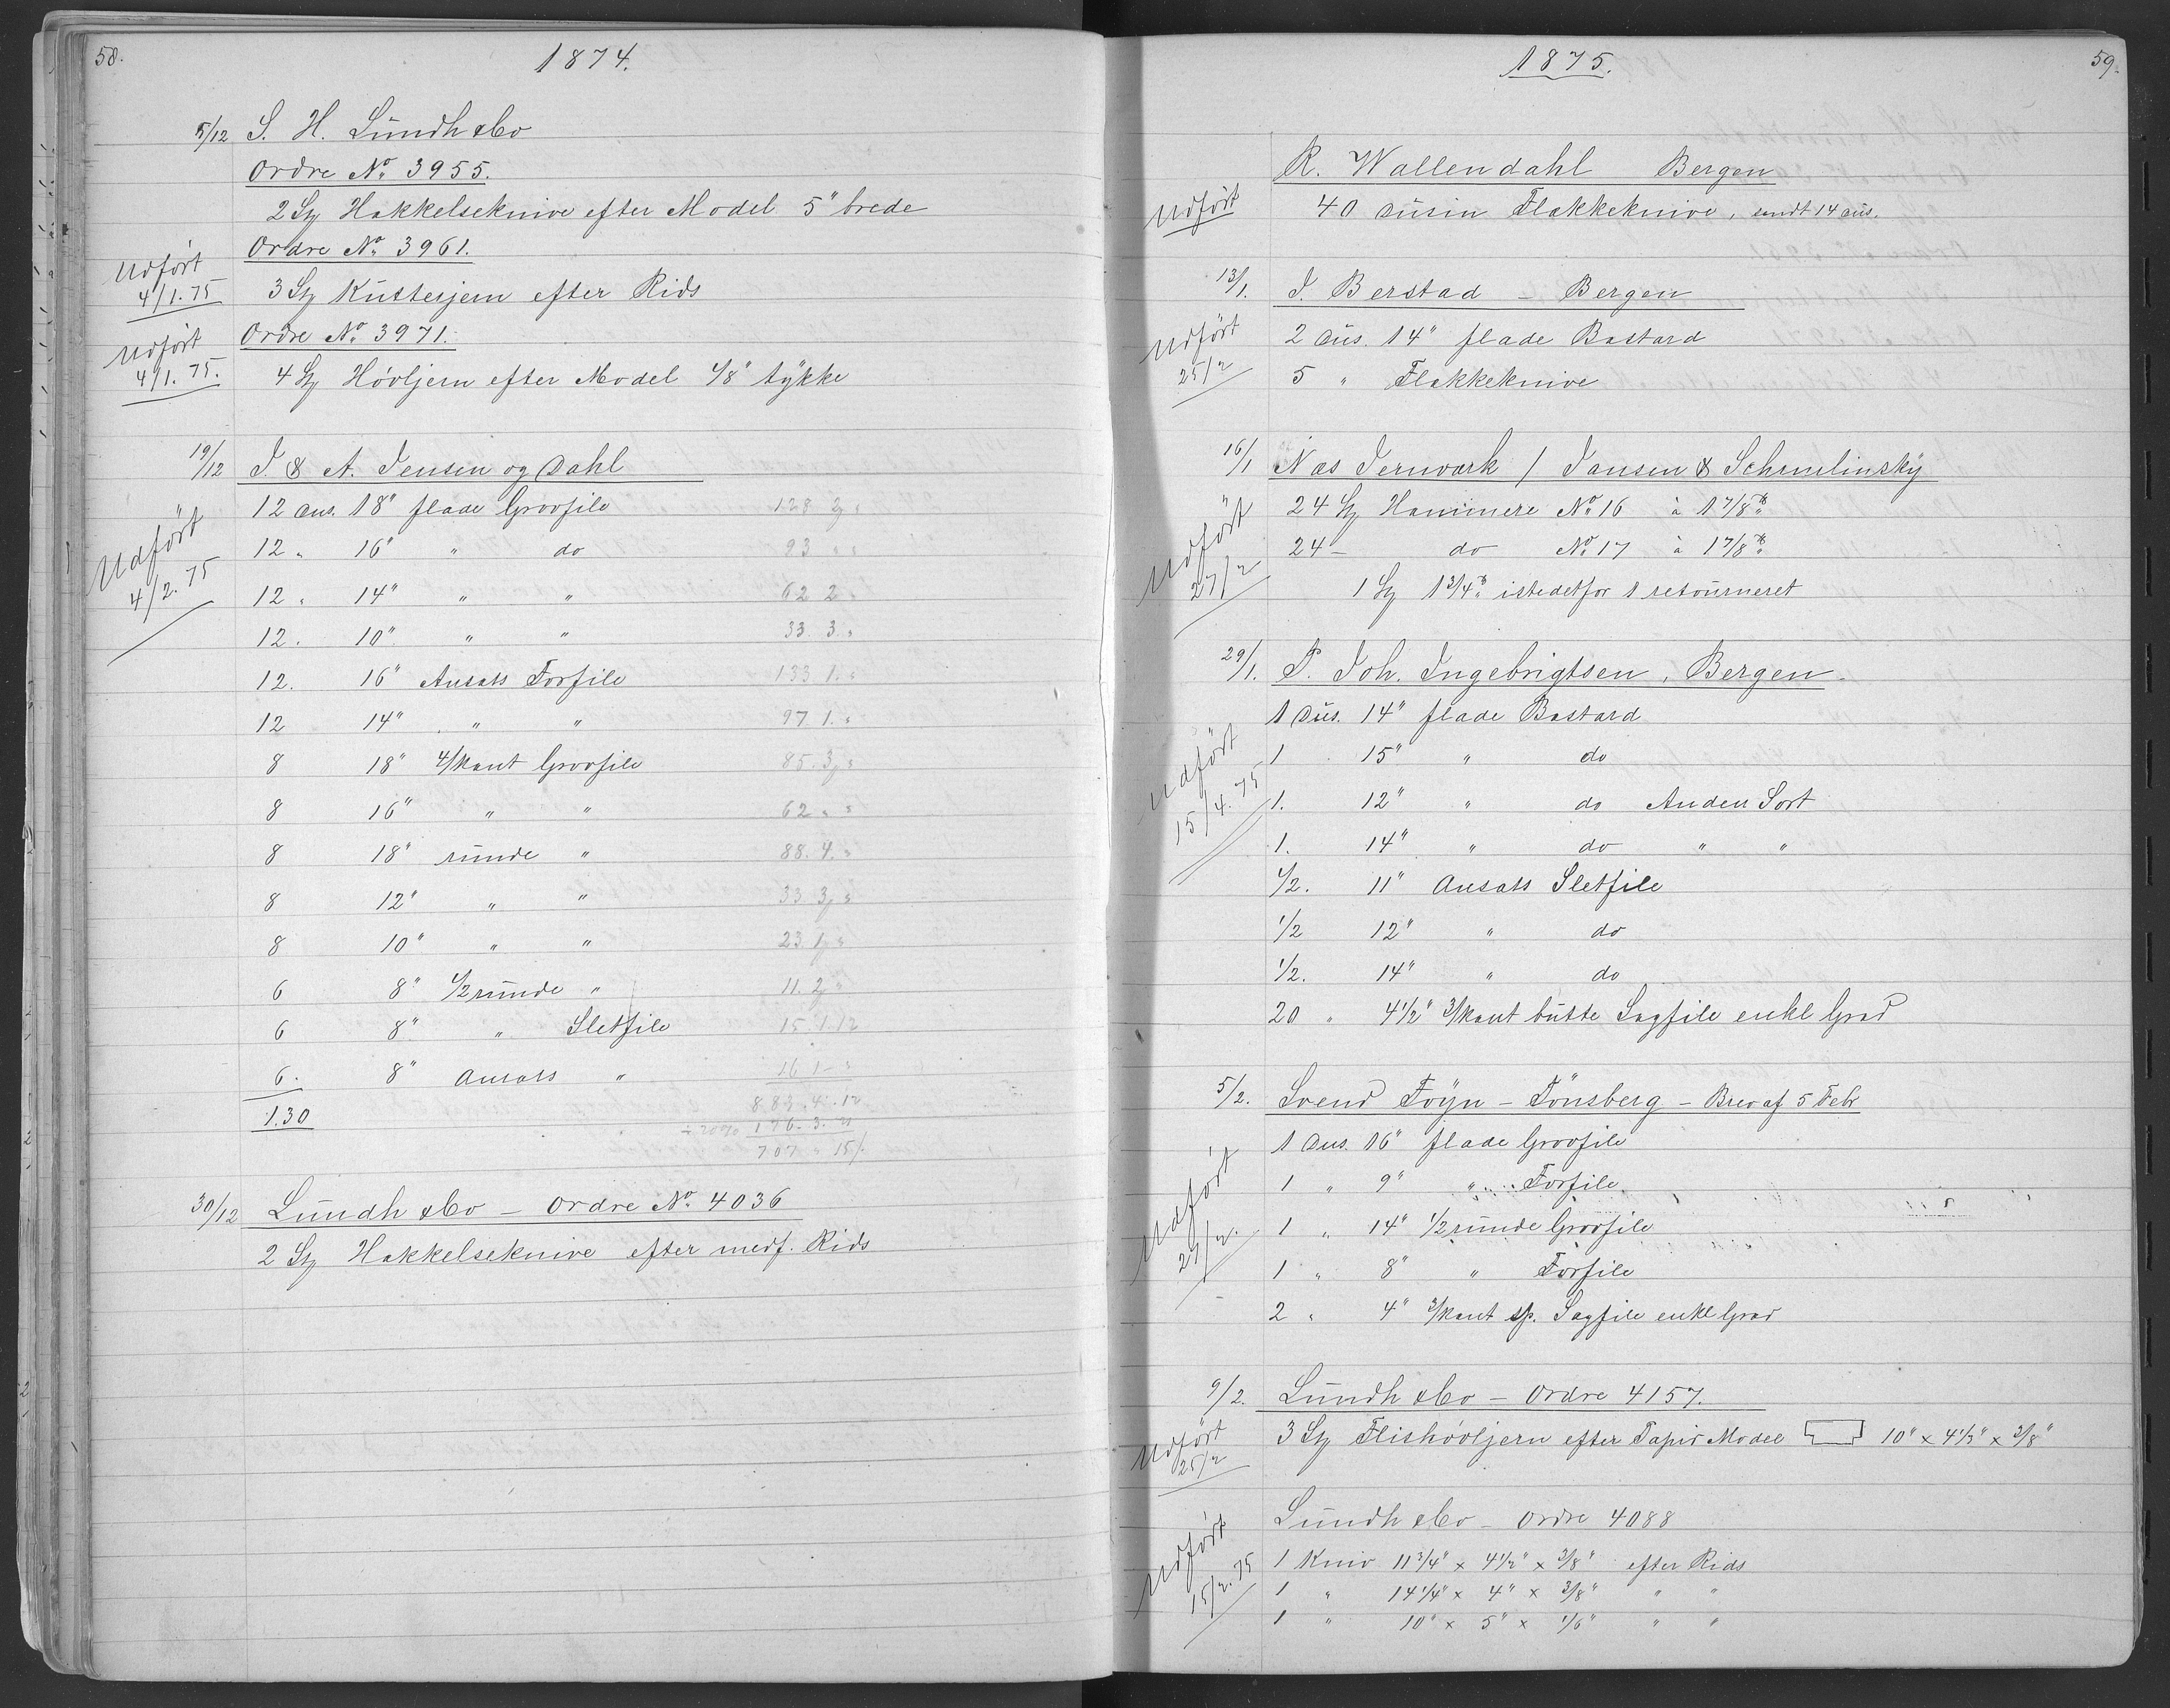 58.
1874.
5/12 S. H. Lundh & Co
Ordre No. 3955.
2 St Hakkelseknive efter Model 5" brede
Ordre No. 3961.
Udført 4/1.75
3 St Kutterjern efter Rids
Ordre No. 3971.
Udført 4/1.75.
4 St Høvljern efter Model 1/8" tykke
19/12 J. & A. Jensen og Dahl
Udført 4/2.75
12 Dus. 18" flade Grovfile 128 3 "
12 " 16" " do 93 " "
12 " 14" " " 62 2 "
12. 10" " " 33. 3. "
12. 16" Ansats Forfile 133 1. "
12 14" " " 97 1. "
8 18" 4/kant Grovfile 85. 3 "
8 16" " " 62 " "
8 18" runde " 88. 4. "
8 12" " " 33 3 "
8 10" " " 23 1 "
6 8" 1/2 runde " 11. 2 "
6 8" " Sletfile 15. 1. 12
6. 8" Ansats " 16 1 "
130 883. 4. 12
÷ 20% 176. 3. 21
707 " 15/.
30/12 Lundh & Co – Ordre No. 4036
2 St Hakkelseknive efter medf. Rids
1875.
59.
R. Wallendahl Bergen
Udført
40 Dusin Flekkeknive, sendt 14 dus.
13/1. J. Berstad – Bergen
Udført 25/2
2 Dus. 14" flade Bastard
5 " Flekkeknive
16/1 Næs Jernværk / Jansen & Schmelinsky
Udført 27/2
24 St Hammere No. 16 à 1 7/8 ℔
24 – do No. 17 à 1 7/8 ℔
1 St 1 3/4 ℔ istedetfor 1 retourneret
29/1. P. Joh. Ingebrigtsen, Bergen.
Udført 15/4.75
1 Dus. 14" flade Bastard
1 15" " do
1. 12" " do Anden Sort
1. 14" " do " "
1/2. 11" Ansats Sletfile
1/2 12" " do
1/2. 14" " do
20 " 4 1/2" 3/kant butte Sagfile enkl Grad
5/2. Svend Foyn – Tönsberg – Brev af 5 Febr
Udført 27/2.
1 Dus. 16" flade Grovfile
1 " 9" " Forfile
1 " 14" 1/2 runde Grovfile
1 " 8" " Forfile
2 " 4" 3/kant sp. Sagfile enkl Grad
9/2. Lundh & Co – Ordre 4157.
Udført 25/2
3 St Flishøvljern efter Papir Model 10" x 4 1/2" x 3/8"
Lundh & Co – Ordre 4088
Udført 15/2.75
1 Kniv 11 3/4" x 4 1/2" x 3/8" efter Rids
1 " 14 1/4" x 4" x 3/8" " "
1 " 10" x 5" x 1/6" " "